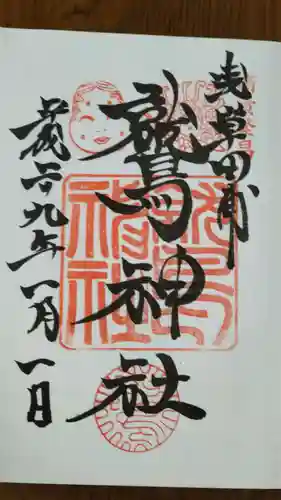 浅草田甫
鷲神社
平成二十九年一月一日